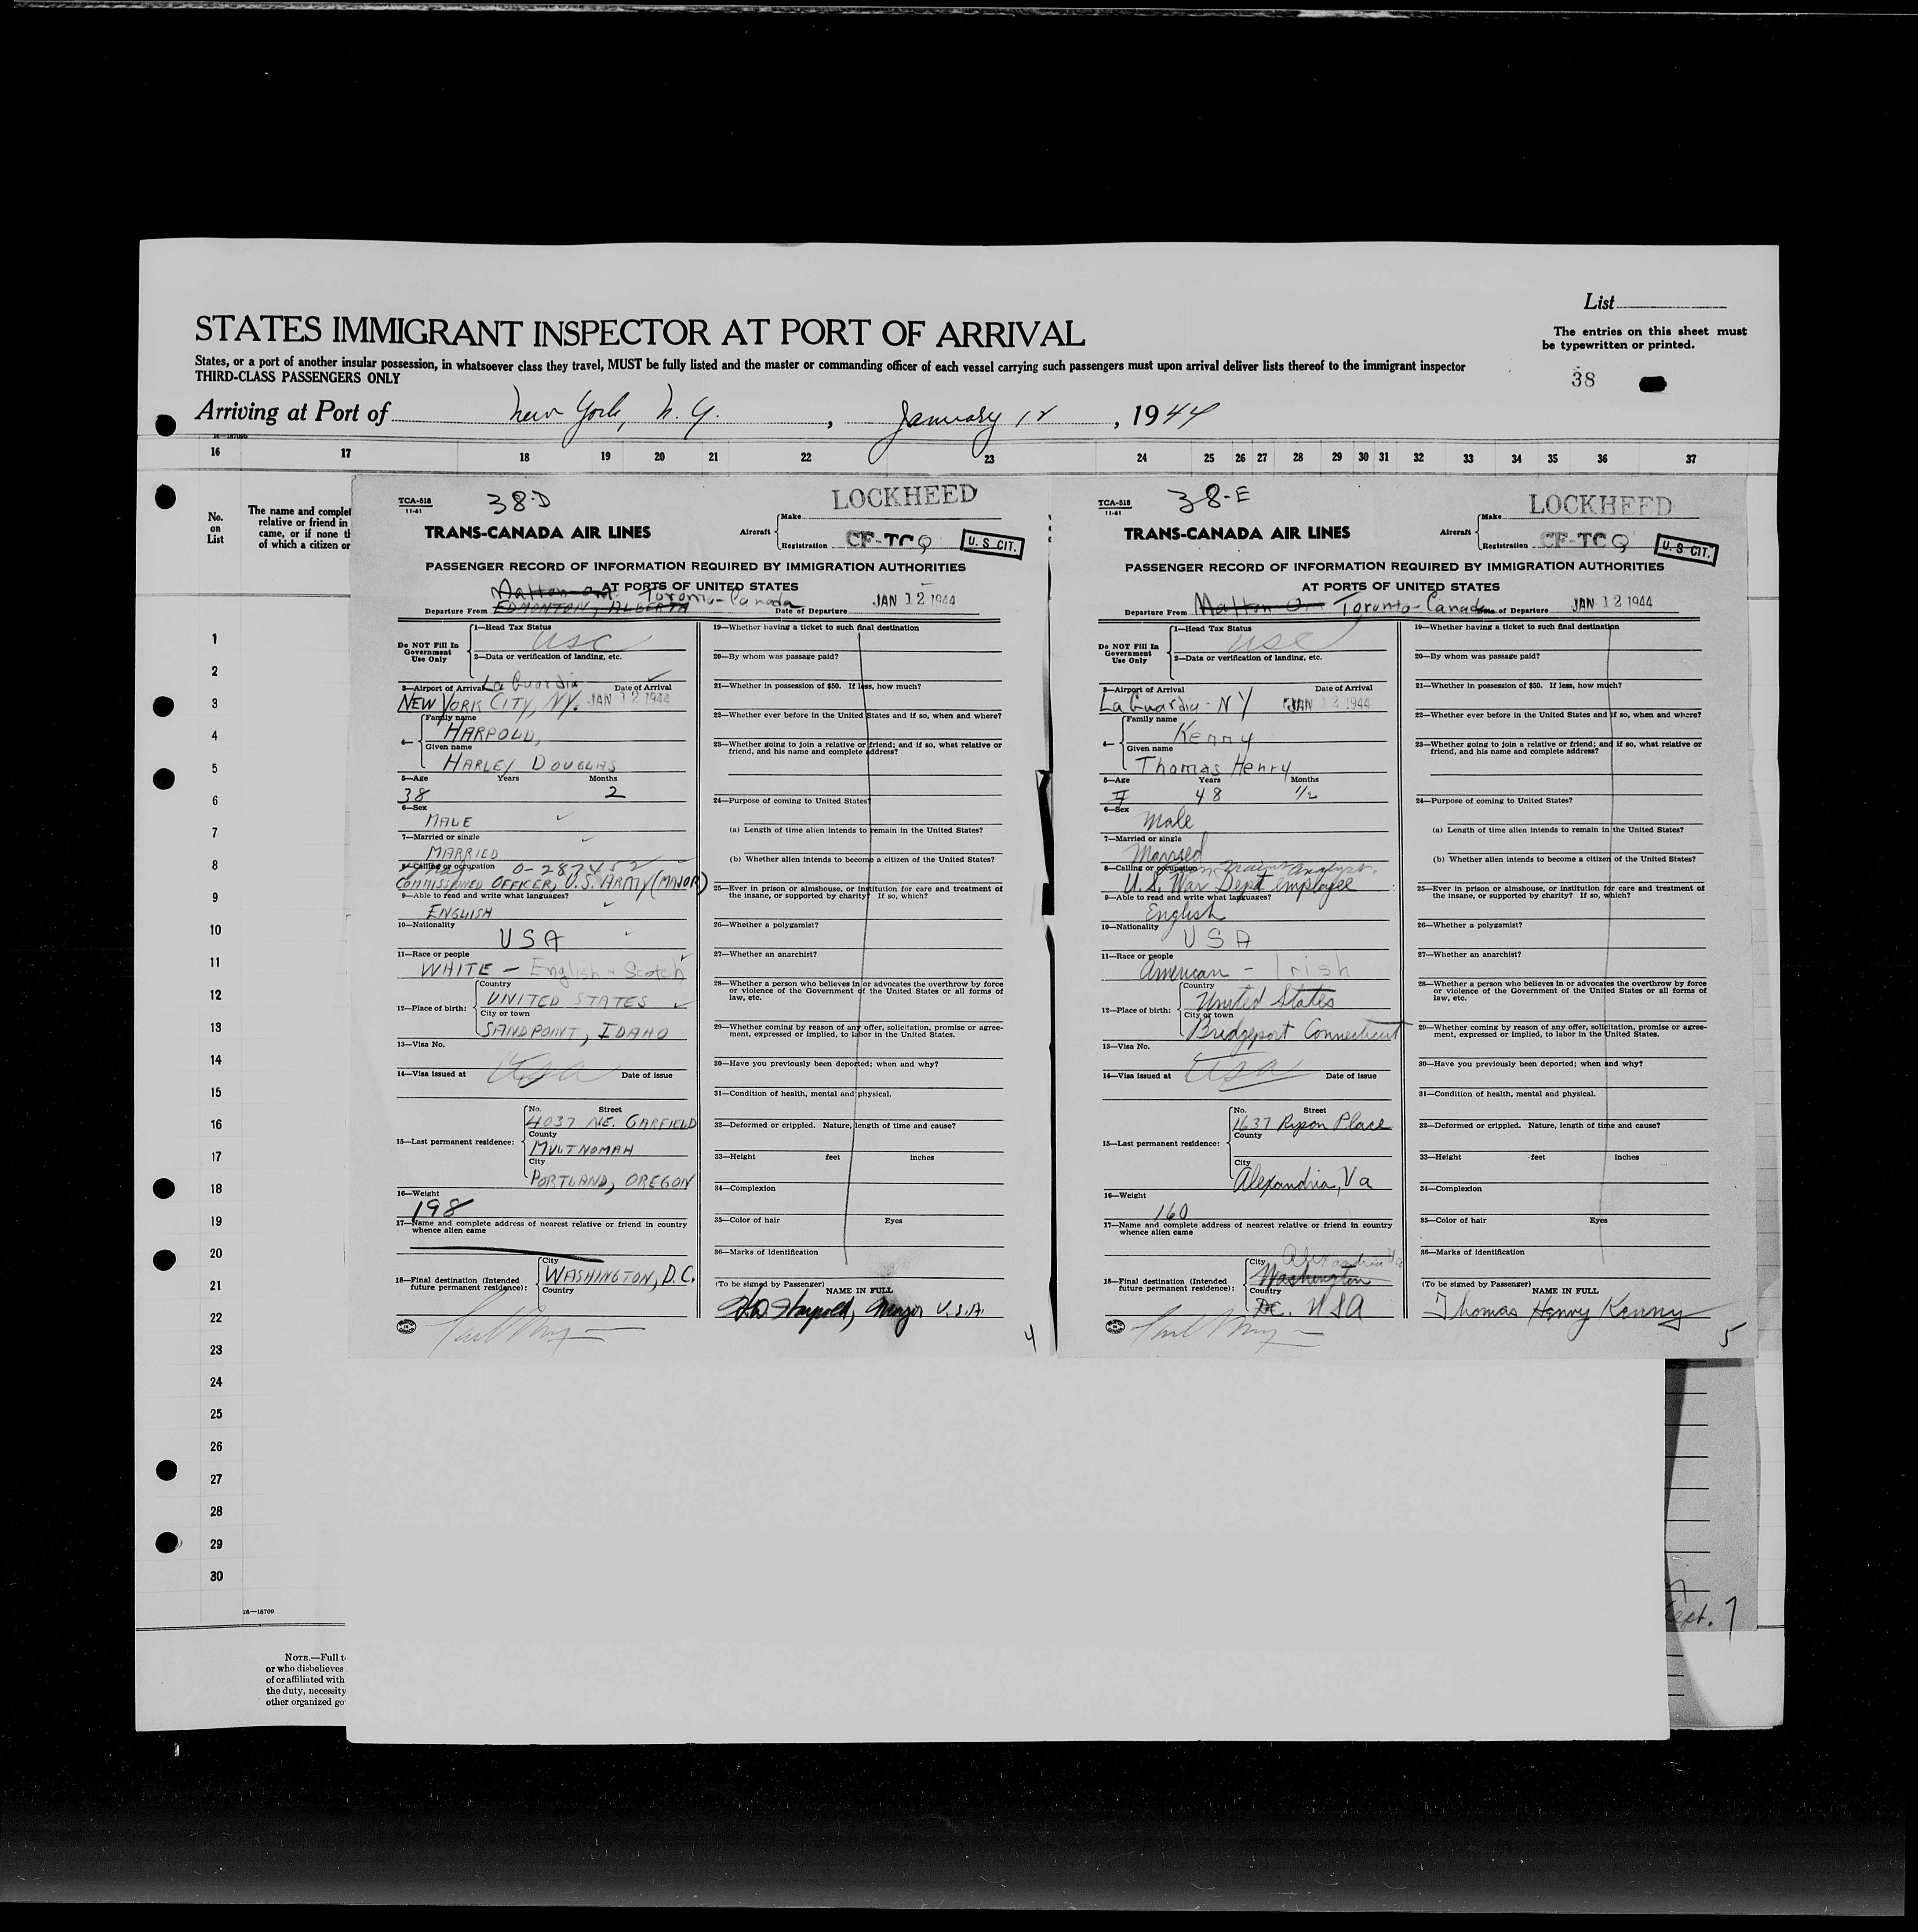 List
STATES IMMIGRANT INSPECTOR AT PORT OF ARRIVAL
The entries on this sheet must
be typewritten or printed.
States, or a port of another insular possession, in whatsoever class they travel, MUST be fully listed and the master or commanding officer of each vessel carrying such passengers must upon arrival deliver lists thereof to the immigrant inspector
THIRD-CLASS PASSENGERS ONLY
38
Arriving at Port of New York, N.Y. , January 12 , 1944
16 17 18 19 20 21 22 23 24 25 26 27 28 29 30 31 32 33 34 35 36 37
No.
on
List
The name and complet
relative or friend in
came, or if none th
of which a citizen or
1
2
3
4
5
6
7
8
9
10
11
12
13
14
15
16
17
18
19
20
21
22
23
24
25
26
27
28
29
30
16—18709
NOTE.—Full t
or who disbelieves
of or affiliated with
the duty, necessity
other organized go
TCA-518
11-41
38-D
LOCKHEED
TRANS-CANADA AIR LINES
Aircraft
Make
Registration CF-TCQ
U. S. CIT.
PASSENGER RECORD OF INFORMATION REQUIRED BY IMMIGRATION AUTHORITIES
AT PORTS OF UNITED STATES
Malton Ont. Toronto-Canada
Departure From EDMONTON, ALBERTA Date of Departure JAN 12 1944
Do NOT Fill In
Government
Use Only
1—Head Tax Status
USC
2—Data or verification of landing, etc.
3—Airport of Arrival La Guardia Date of Arrival
NEW YORK CITY, NY. JAN 12 1944
4—
Family name
HARPOLD,
Given name
HARLEY DOUGLAS
5—Age Years Months
38 2
6—Sex
MALE
7—Married or single
MARRIED
8—Calling or occupation 0-287452
COMMISSIONED OFFICER, U.S. ARMY (MAJOR)
9—Able to read and write what languages?
ENGLISH
10—Nationality
USA
11—Race or people
WHITE — English & Scotch
12—Place of birth:
Country
UNITED STATES
City or town
SANDPOINT, IDAHO
13—Visa No.
14—Visa issued at Date of issue
15—Last permanent residence:
No. Street
4037 NE. GARFIELD
County
MULTNOMAH
City
PORTLAND, OREGON
16—Weight
198
17—Name and complete address of nearest relative or friend in country
whence alien came
18—Final destination (Intended
future permanent residence):
City
WASHINGTON, D.C.
Country
19—Whether having a ticket to such final destination
20—By whom was passage paid?
21—Whether in possession of $50. If less, how much?
22—Whether ever before in the United States and if so, when and where?
23—Whether going to join a relative or friend; and if so, what relative or
friend, and his name and complete address?
24—Purpose of coming to United States?
(a) Length of time alien intends to remain in the United States?
(b) Whether alien intends to become a citizen of the United States?
25—Ever in prison or almshouse, or institution for care and treatment of
the insane, or supported by charity? If so, which?
26—Whether a polygamist?
27—Whether an anarchist?
28—Whether a person who believes in or advocates the overthrow by force
or violence of the Government of the United States or all forms of
law, etc.
29—Whether coming by reason of any offer, solicitation, promise or agree-
ment, expressed or implied, to labor in the United States.
30—Have you previously been deported; when and why?
31—Condition of health, mental and physical.
32—Deformed or crippled. Nature, length of time and cause?
33—Height feet inches
34—Complexion
35—Color of hair Eyes
36—Marks of identification
(To be signed by Passenger)
NAME IN FULL
H.D. Harpold, Major U.S.A.
4
TCA-518
11-41
38-E
LOCKHEED
TRANS-CANADA AIR LINES
Aircraft
Make
Registration CF-TCQ
U. S. CIT.
PASSENGER RECORD OF INFORMATION REQUIRED BY IMMIGRATION AUTHORITIES
AT PORTS OF UNITED STATES
Departure From Malton On Toronto-Canada Date of Departure JAN 12 1944
Do NOT Fill In
Government
Use Only
1—Head Tax Status
USC
2—Data or verification of landing, etc.
3—Airport of Arrival Date of Arrival
La Guardia - NY JAN 12 1944
4—
Family name
Kenny
Given name
Thomas Henry
5—Age Years Months
48 1/2
6—Sex
Male
7—Married or single
Married
8—Calling or occupation analyst.
U.S. War Dept employee
9—Able to read and write what languages?
English
10—Nationality
USA
11—Race or people
American - Irish
12—Place of birth:
Country
United States
City or town
Bridgeport Connecticut
13—Visa No.
14—Visa issued at Date of issue
15—Last permanent residence:
No. Street
1637 Ripon Place
County
City
Alexandria, Va
16—Weight
160
17—Name and complete address of nearest relative or friend in country
whence alien came
18—Final destination (Intended
future permanent residence):
City Alexandria Va
Washington
Country
DC. USA
19—Whether having a ticket to such final destination
20—By whom was passage paid?
21—Whether in possession of $50. If less, how much?
22—Whether ever before in the United States and if so, when and where?
23—Whether going to join a relative or friend; and if so, what relative or
friend, and his name and complete address?
24—Purpose of coming to United States?
(a) Length of time alien intends to remain in the United States?
(b) Whether alien intends to become a citizen of the United States?
25—Ever in prison or almshouse, or institution for care and treatment of
the insane, or supported by charity? If so, which?
26—Whether a polygamist?
27—Whether an anarchist?
28—Whether a person who believes in or advocates the overthrow by force
or violence of the Government of the United States or all forms of
law, etc.
29—Whether coming by reason of any offer, solicitation, promise or agree-
ment, expressed or implied, to labor in the United States.
30—Have you previously been deported; when and why?
31—Condition of health, mental and physical.
32—Deformed or crippled. Nature, length of time and cause?
33—Height feet inches
34—Complexion
35—Color of hair Eyes
36—Marks of identification
(To be signed by Passenger)
NAME IN FULL
Thomas Henry Kenny
5